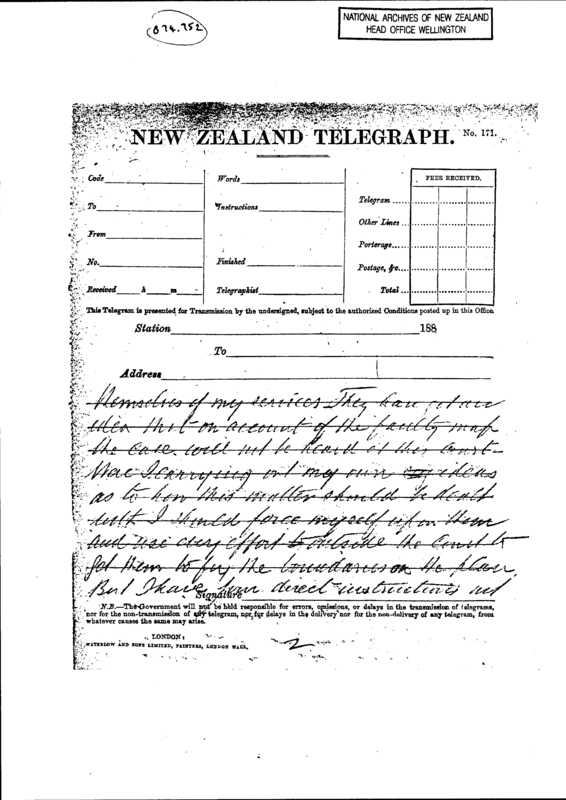 074.752
NATIONAL ARCHIVES OF NEW ZEALAND
HEAD OFFICE WELLINGTON
NEW ZEALAND TELEGRAPH. No. 171.
Code
Words
FEES RECEIVED.
To
Instructions
Telegram
Other Lines
From
Porterage
No.
Finished
Postage, &c.
Received h m
Telegraphist
Total
This Telegram is presented for Transmission by the undersigned, subject to the authorized Conditions posted up in this Office.
Station 188
To
Address
themselves of my services They have
idea that on account of the faulty map
the case will not be heard at this Court
Was I carrying out my own ideas
as to how this matter should be dealt
with I should force myself upon them
and use every effort to outside the Court to
get them to fix the boundaries on the plan
But I have your direct instructions not
Signature
N.B.—The Government will not be held responsible for errors, omissions, or delays in the transmission of telegrams,
nor for the non-transmission of any telegram, nor for delays in the delivery nor for the non-delivery of any telegram, from
whatever causes the same may arise.
LONDON:
WATERLOW AND SONS LIMITED, PRINTERS, LONDON WALL.
2